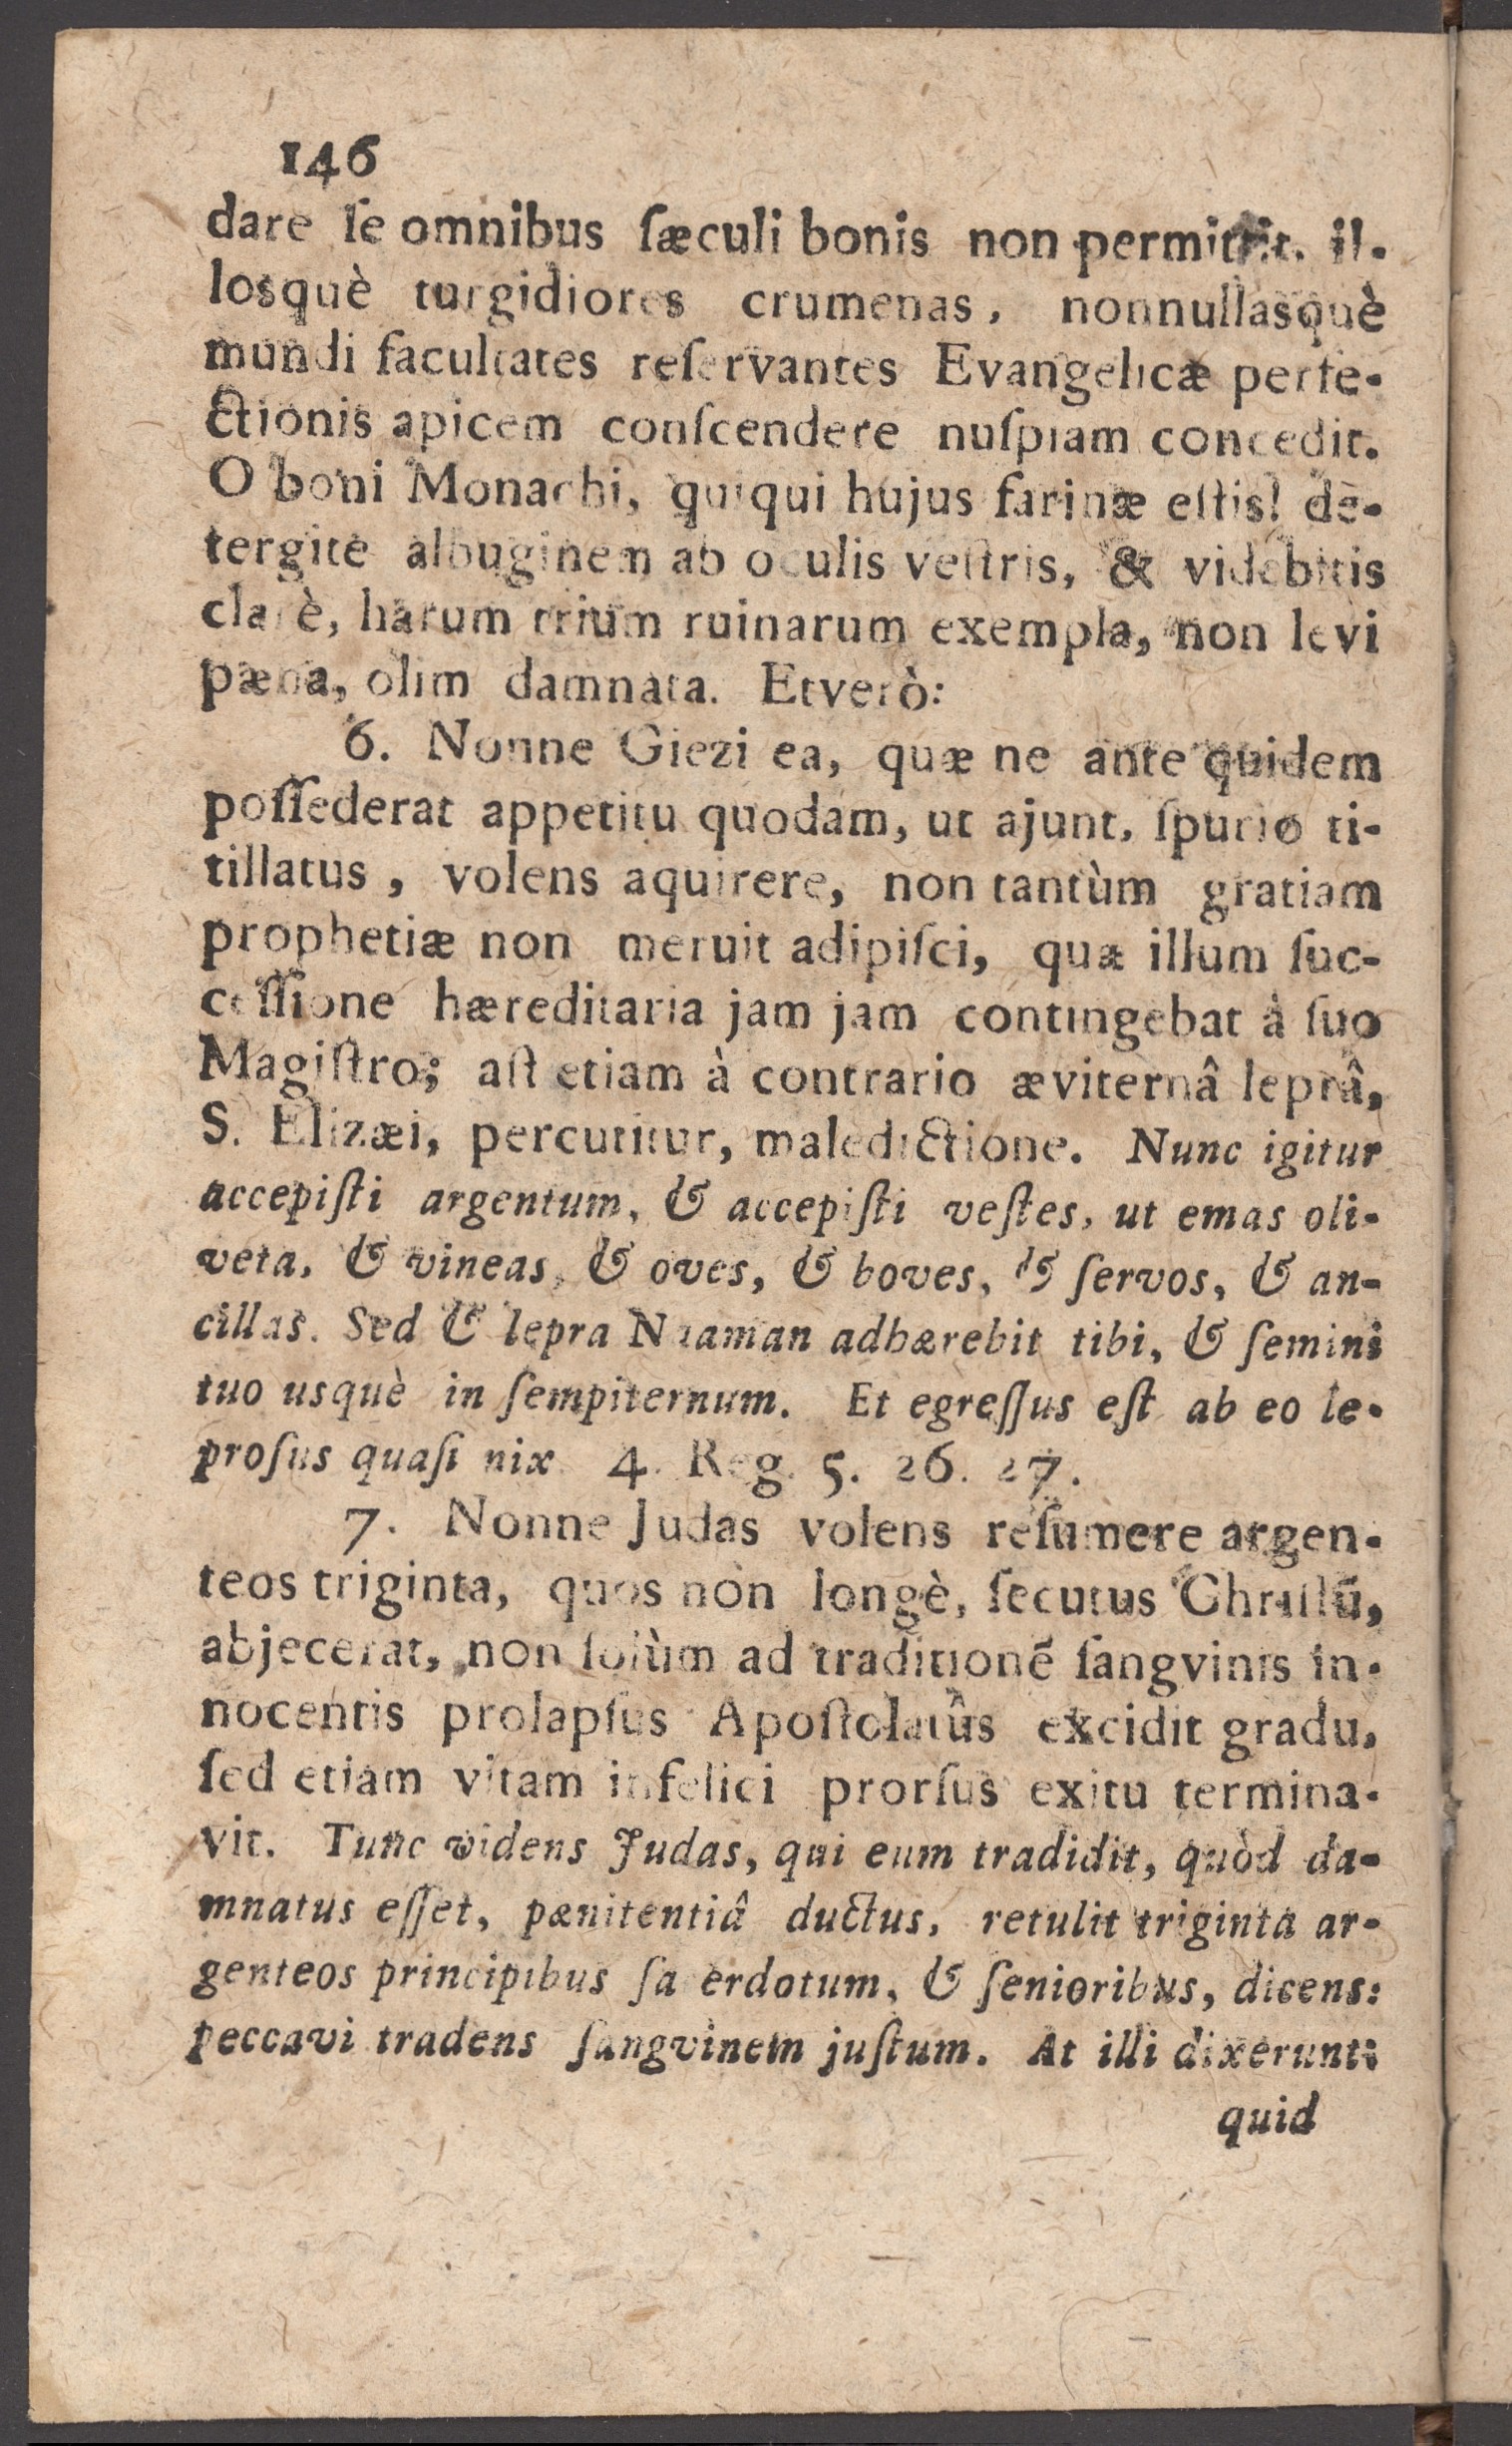 146
dare ſe omnibus ſæculi bonis non permittit. il-
losquè turgidiores crumenas, nonnullasquè
mundi facultates reſervantes Evangelicæ perfe-
ctionis apicem conſcendere nuſpiam concedit.
O boni Monachi, quiqui hujus farinæ eſtis! de-
tergite albuginem ab oculis veſtris, & videbitis
clarè, harum trium ruinarum exempla, non levi
pæna, olim damnata. Etverò:
6. Nonne Giezi ea, quæ ne ante quidem
poſſederat appetitu quodam, ut ajunt, ſpurio ti-
tillatus, volens aquirere, non tantùm gratiam
prophetiæ non meruit adipiſci, quæ illum ſuc-
ceſſione hæreditaria jam jam contingebat à ſuo
Magiſtro; aſt etiam à contrario æviternâ leprâ,
S. Elizæi, percutitur, maledictione. Nunc igitur
accepiſti argentum, & accepiſti veſtes, ut emas oli-
veta, & vineas, & oves, & boves, & ſervos, & an-
cillas. Sed & lepra Naaman adhærebit tibi, & ſemini
tuo usquè in ſempiternum. Et egreſſus eſt ab eo le-
proſus quaſi nix 4. Reg. 5. 26. 27.
7. Nonne Judas volens reſumere argen-
teos triginta, quos non longè, ſecutus Chriſtū,
abjecerat, non ſolùm ad traditionē ſangvinis in-
nocentis prolapſus Apoſtolatûs excidit gradu,
ſed etiam vitam infelici prorſus exitu termina-
vit. Tunc videns Judas, qui eum tradidit, quòd da-
mnatus eſſet, pænitentiâ ductus, retulit triginta ar-
genteos principibus ſa erdotum, & ſenioribus, dicens:
peccavi tradens ſangvinem juſtum. At illi dixerunt:
quid